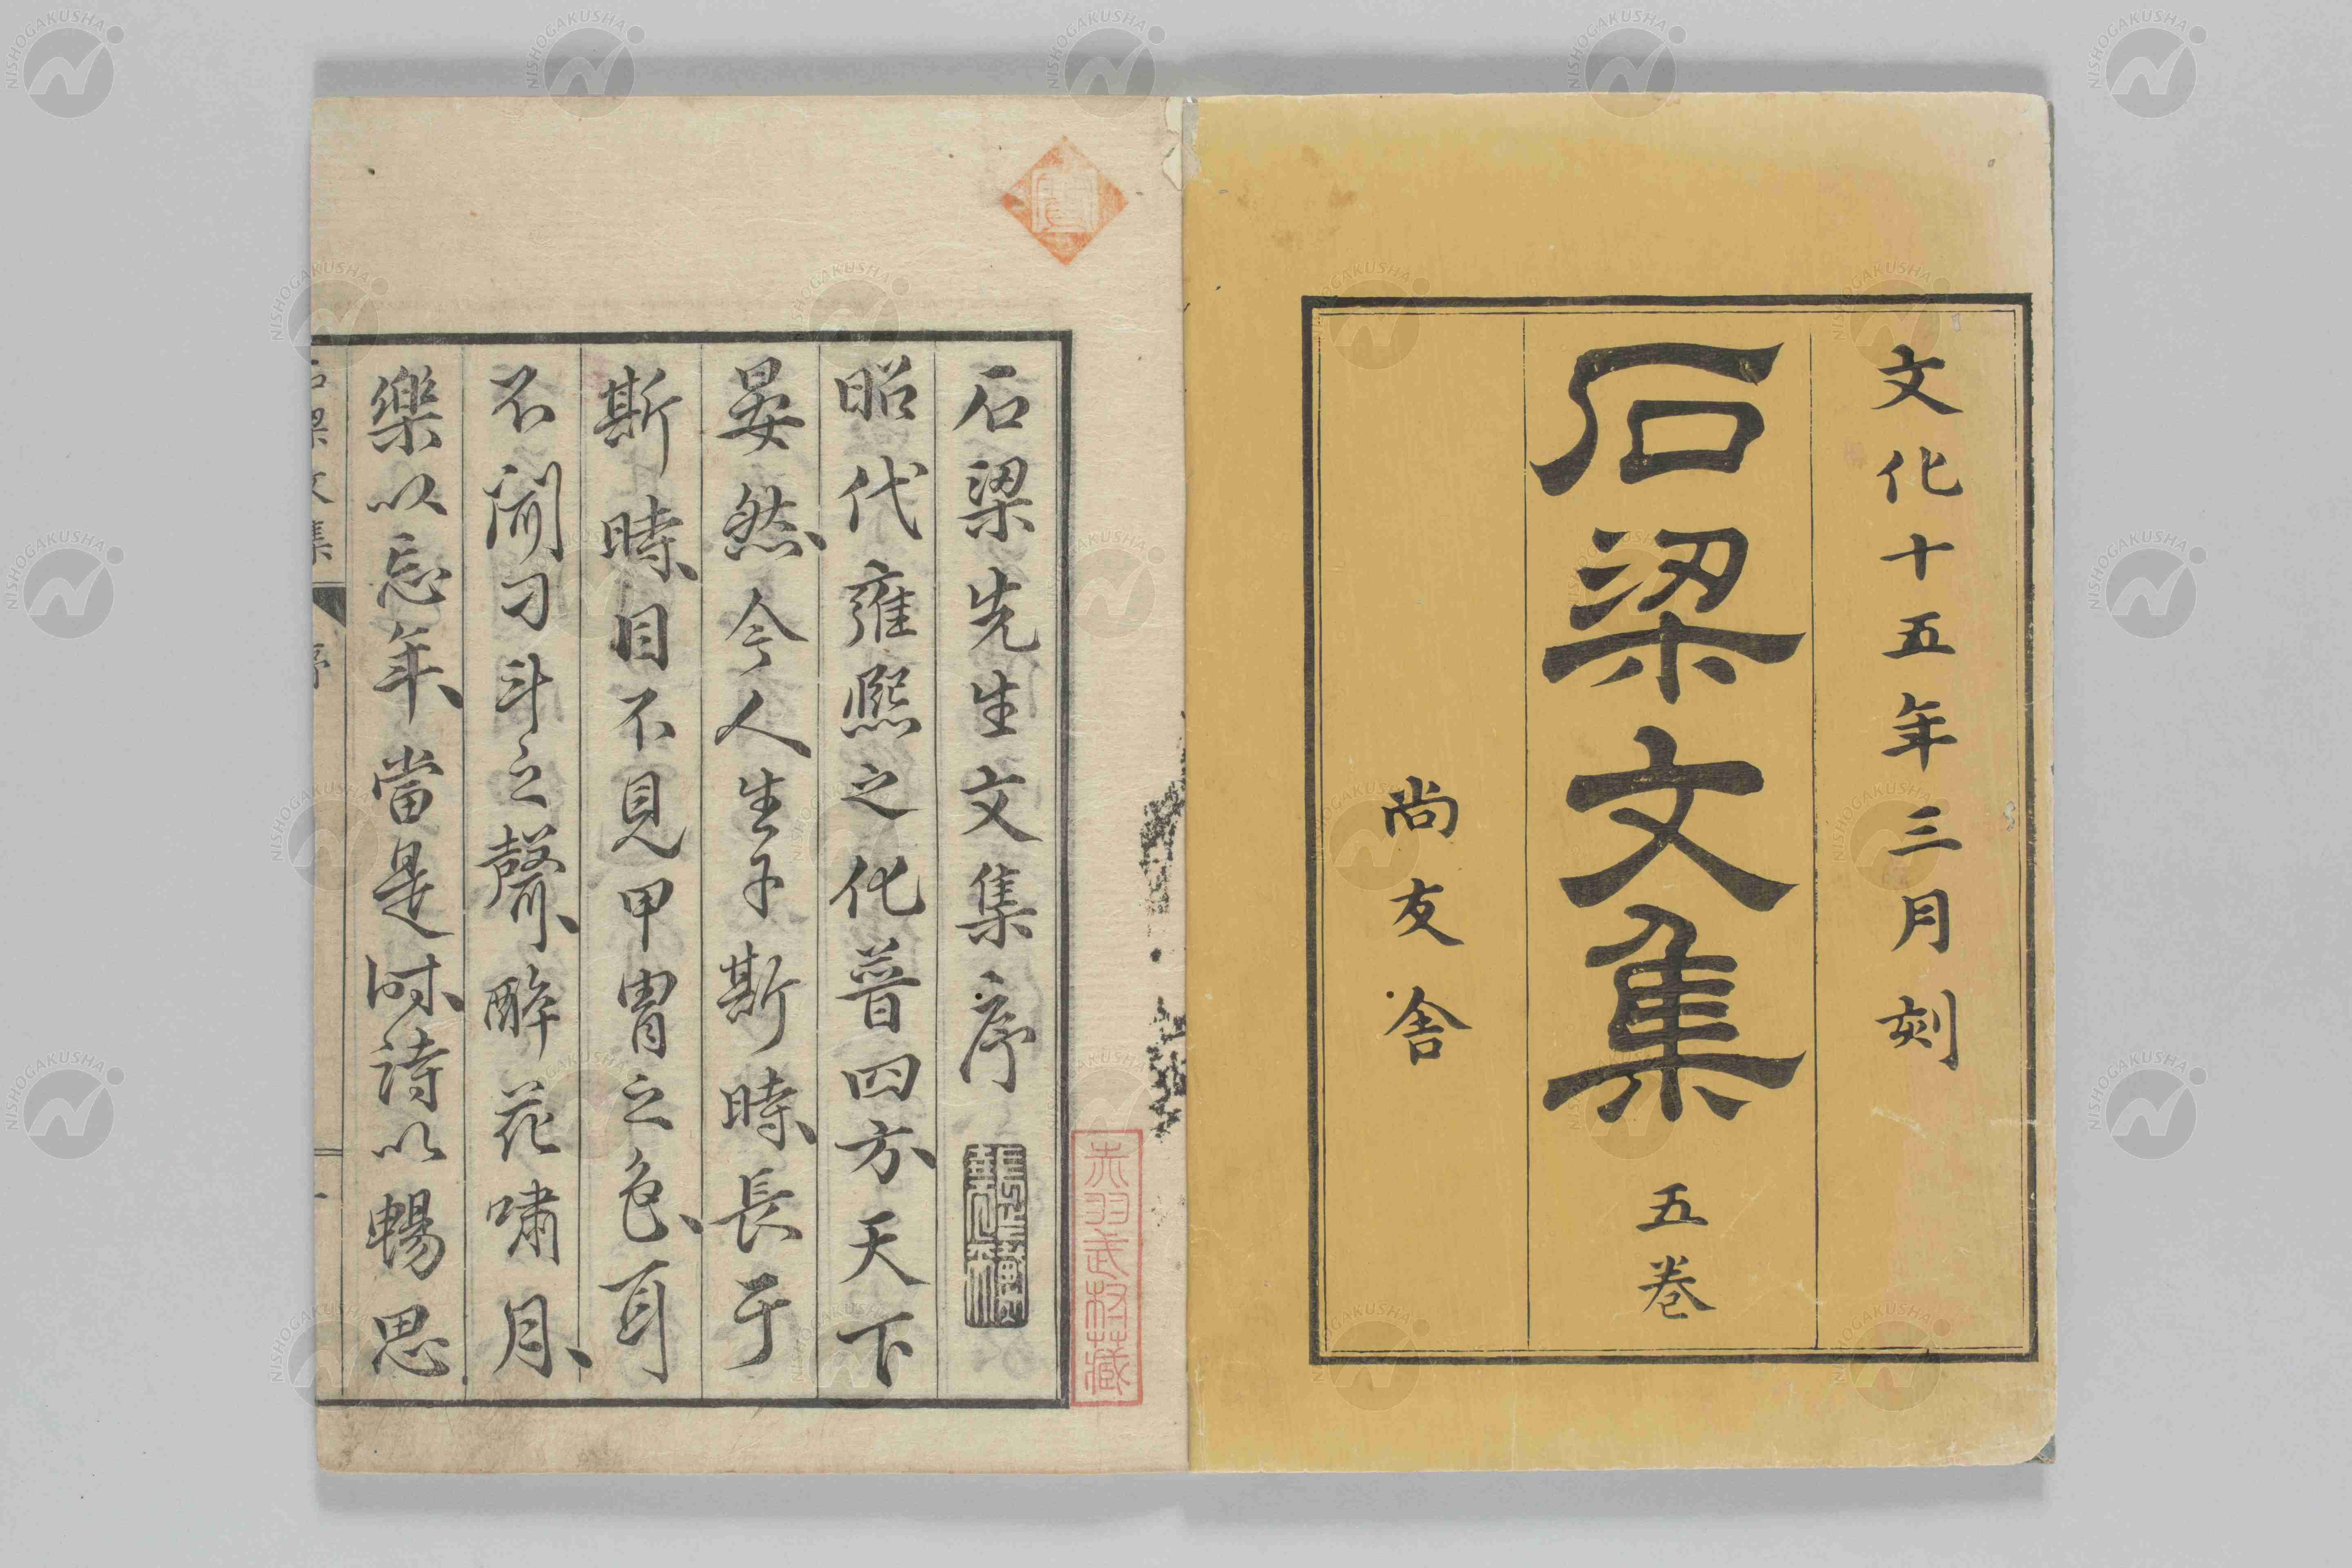 文化十五年三月刻
石梁文集 五巻
尚友舎
石梁先生文集序
昭代雍熙之化普四方天下
晏然今人生于斯時長于
斯時目不見甲冑之色耳
不聞刁斗之聲醉花嘯月
樂以忘年當是時詩以暢思
石梁文集 序
赤羽武材藏
NISHOGAKUSHA